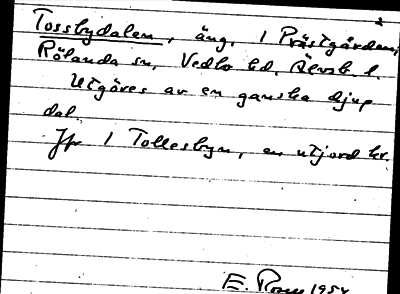 Tossbydalen, äng, 1 Prästgården,
Rölanda sn, Vedbo hd, Älvsb. l.
Utgöres av en ganska djup
dal.
Jfr 1 Tollesbyn, en utjord hr.
E. 1954